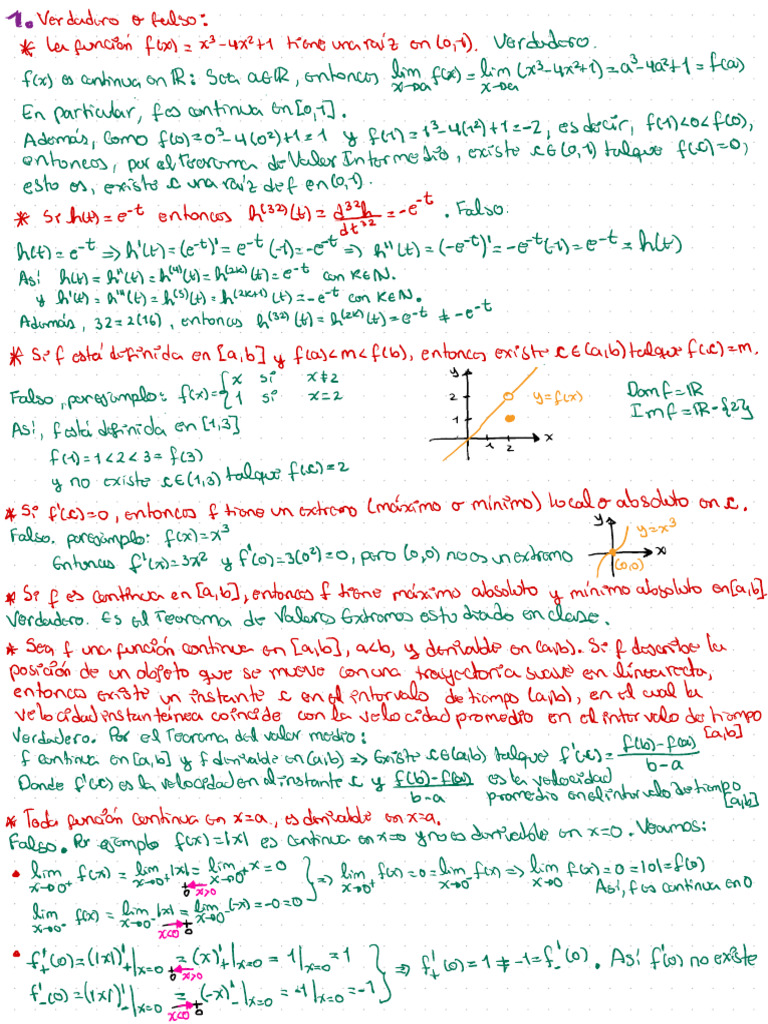 1. Verdadero o falso:
* La función f(x) = x³-4x²+1 tiene una raíz en (0,1). Verdadero.
f(x) es continua en ℝ: Sea a∈ℝ, entonces lim x→a f(x) = lim x→a (x³-4x²+1) = a³-4a²+1 = f(a)
En particular, f es continua en [0,1].
Además, como f(0)=0³-4(0²)+1=1 y f(1)=1³-4(1²)+1=-2, es decir, f(1)<0<f(0),
entonces, por el Teorema de Valor Intermedio, existe c∈(0,1) tal que f(c)=0,
esto es, existe c una raíz de f en (0,1).
* Si h(t)=e^-t entonces h^(32)(t) = d^32h/dt^32 = -e^-t. Falso.
h(t)=e^-t ⇒ h'(t)=(e^-t)'=e^-t(-1)=-e^-t ⇒ h''(t)=(-e^-t)'=-e^-t(-1)=e^-t=h(t)
Así h(t)=h''(t)=h^(4)(t)=h^(2k)(t)=e^-t con k∈ℕ.
y h'(t)=h'''(t)=h^(5)(t)=h^(2k+1)(t)=-e^-t con k∈ℕ.
Además, 32=2(16), entonces h^(32)(t)=h^(2k)(t)=e^-t ≠ -e^-t
* Si f está definida en [a,b] y f(a)<m<f(b), entonces existe c∈(a,b) tal que f(c)=m.
Falso, por ejemplo: f(x)={x si x≠2
1 si x=2
y
2
1
1 2
x
y=f(x)
Dom f=ℝ
Im f=ℝ-{2}
Así, f está definida en [1,3]
f(1)=1<2<3=f(3)
y no existe c∈(1,3) tal que f(c)=2
* Si f'(c)=0, entonces f tiene un extremo (máximo o mínimo) local o absoluto en c.
Falso. por ejemplo: f(x)=x³
Entonces f'(x)=3x² y f'(0)=3(0²)=0, pero (0,0) no es un extremo
y
y=x³
x
(0,0)
* Si f es continua en [a,b], entonces f tiene máximo absoluto y mínimo absoluto en [a,b].
Verdadero. Es el Teorema de Valores Extremos estudiado en clase.
* Sea f una función continua en [a,b], a<b, y derivable en (a,b). Si f describe la
posición de un objeto que se mueve con una trayectoria suave en línea recta,
entonces existe un instante c en el intervalo de tiempo (a,b), en el cual la
velocidad instantánea coincide con la velocidad promedio en el intervalo de tiempo
[a,b]
Verdadero. Por el Teorema del valor medio:
f continua en [a,b] y f derivable en (a,b) ⇒ Existe c∈(a,b) tal que f'(c)= f(b)-f(a)/b-a
Donde f'(c) es la velocidad en el instante c y f(b)-f(a)/b-a es la velocidad
promedio en el intervalo de tiempo
[a,b]
* Toda función continua en x=a, es derivable en x=a.
Falso. Por ejemplo f(x)=|x| es continua en x=0 y no es derivable en x=0. Veamos:
• lim x→0⁺ f(x) = lim x→0⁺ |x| = lim x→0⁺ x = 0 } ⇒ lim x→0⁺ f(x)=0=lim x→0⁻ f(x) ⇒ lim x→0 f(x)=0=|0|=f(0)
0 x>0
Así, f es continua en 0
lim x→0⁻ f(x) = lim x→0⁻ |x| = lim x→0⁻ (-x) = -0=0
x<0 0
• f'₊(0)=(|x|)'₊|x=0 = (x)'₊|x=0 = 1|x=0 = 1 } ⇒ f'₊(0)=1≠-1=f'₋(0). Así f'(0) no existe
0 x>0
f'₋(0)=(|x|)'₋|x=0 = (-x)'₋|x=0 = -1|x=0 = -1
x<0 0